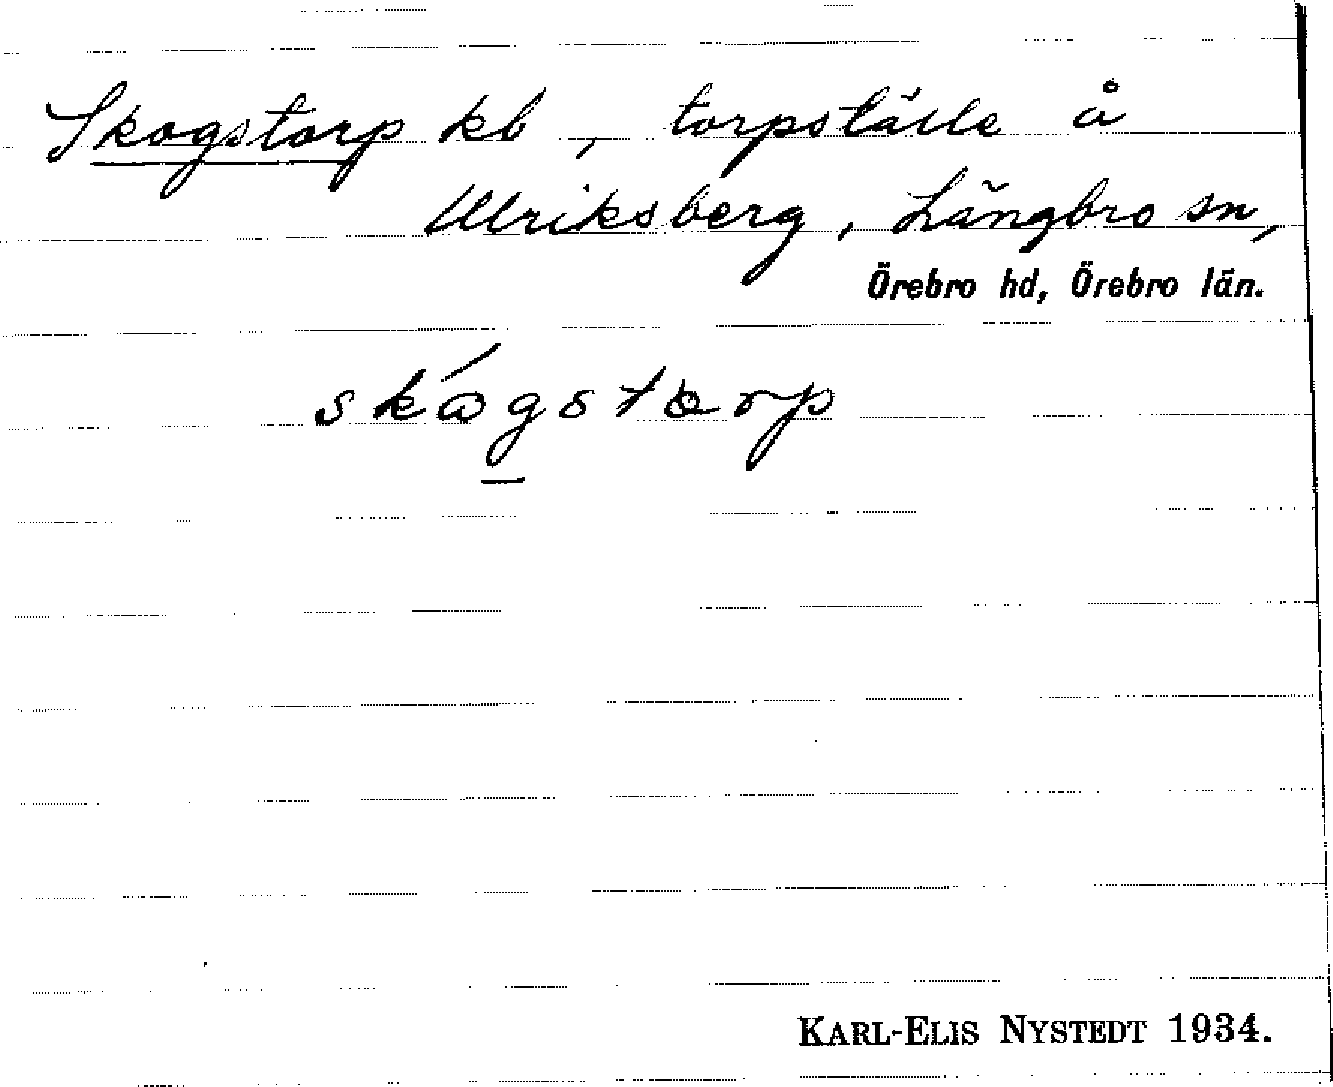 Skogstorp kb, torpställe å
Ulriksberg, Längbro sn,
Örebro hd, Örebro län.
skógstorp
KARL-ELIS NYSTEDT 1934.